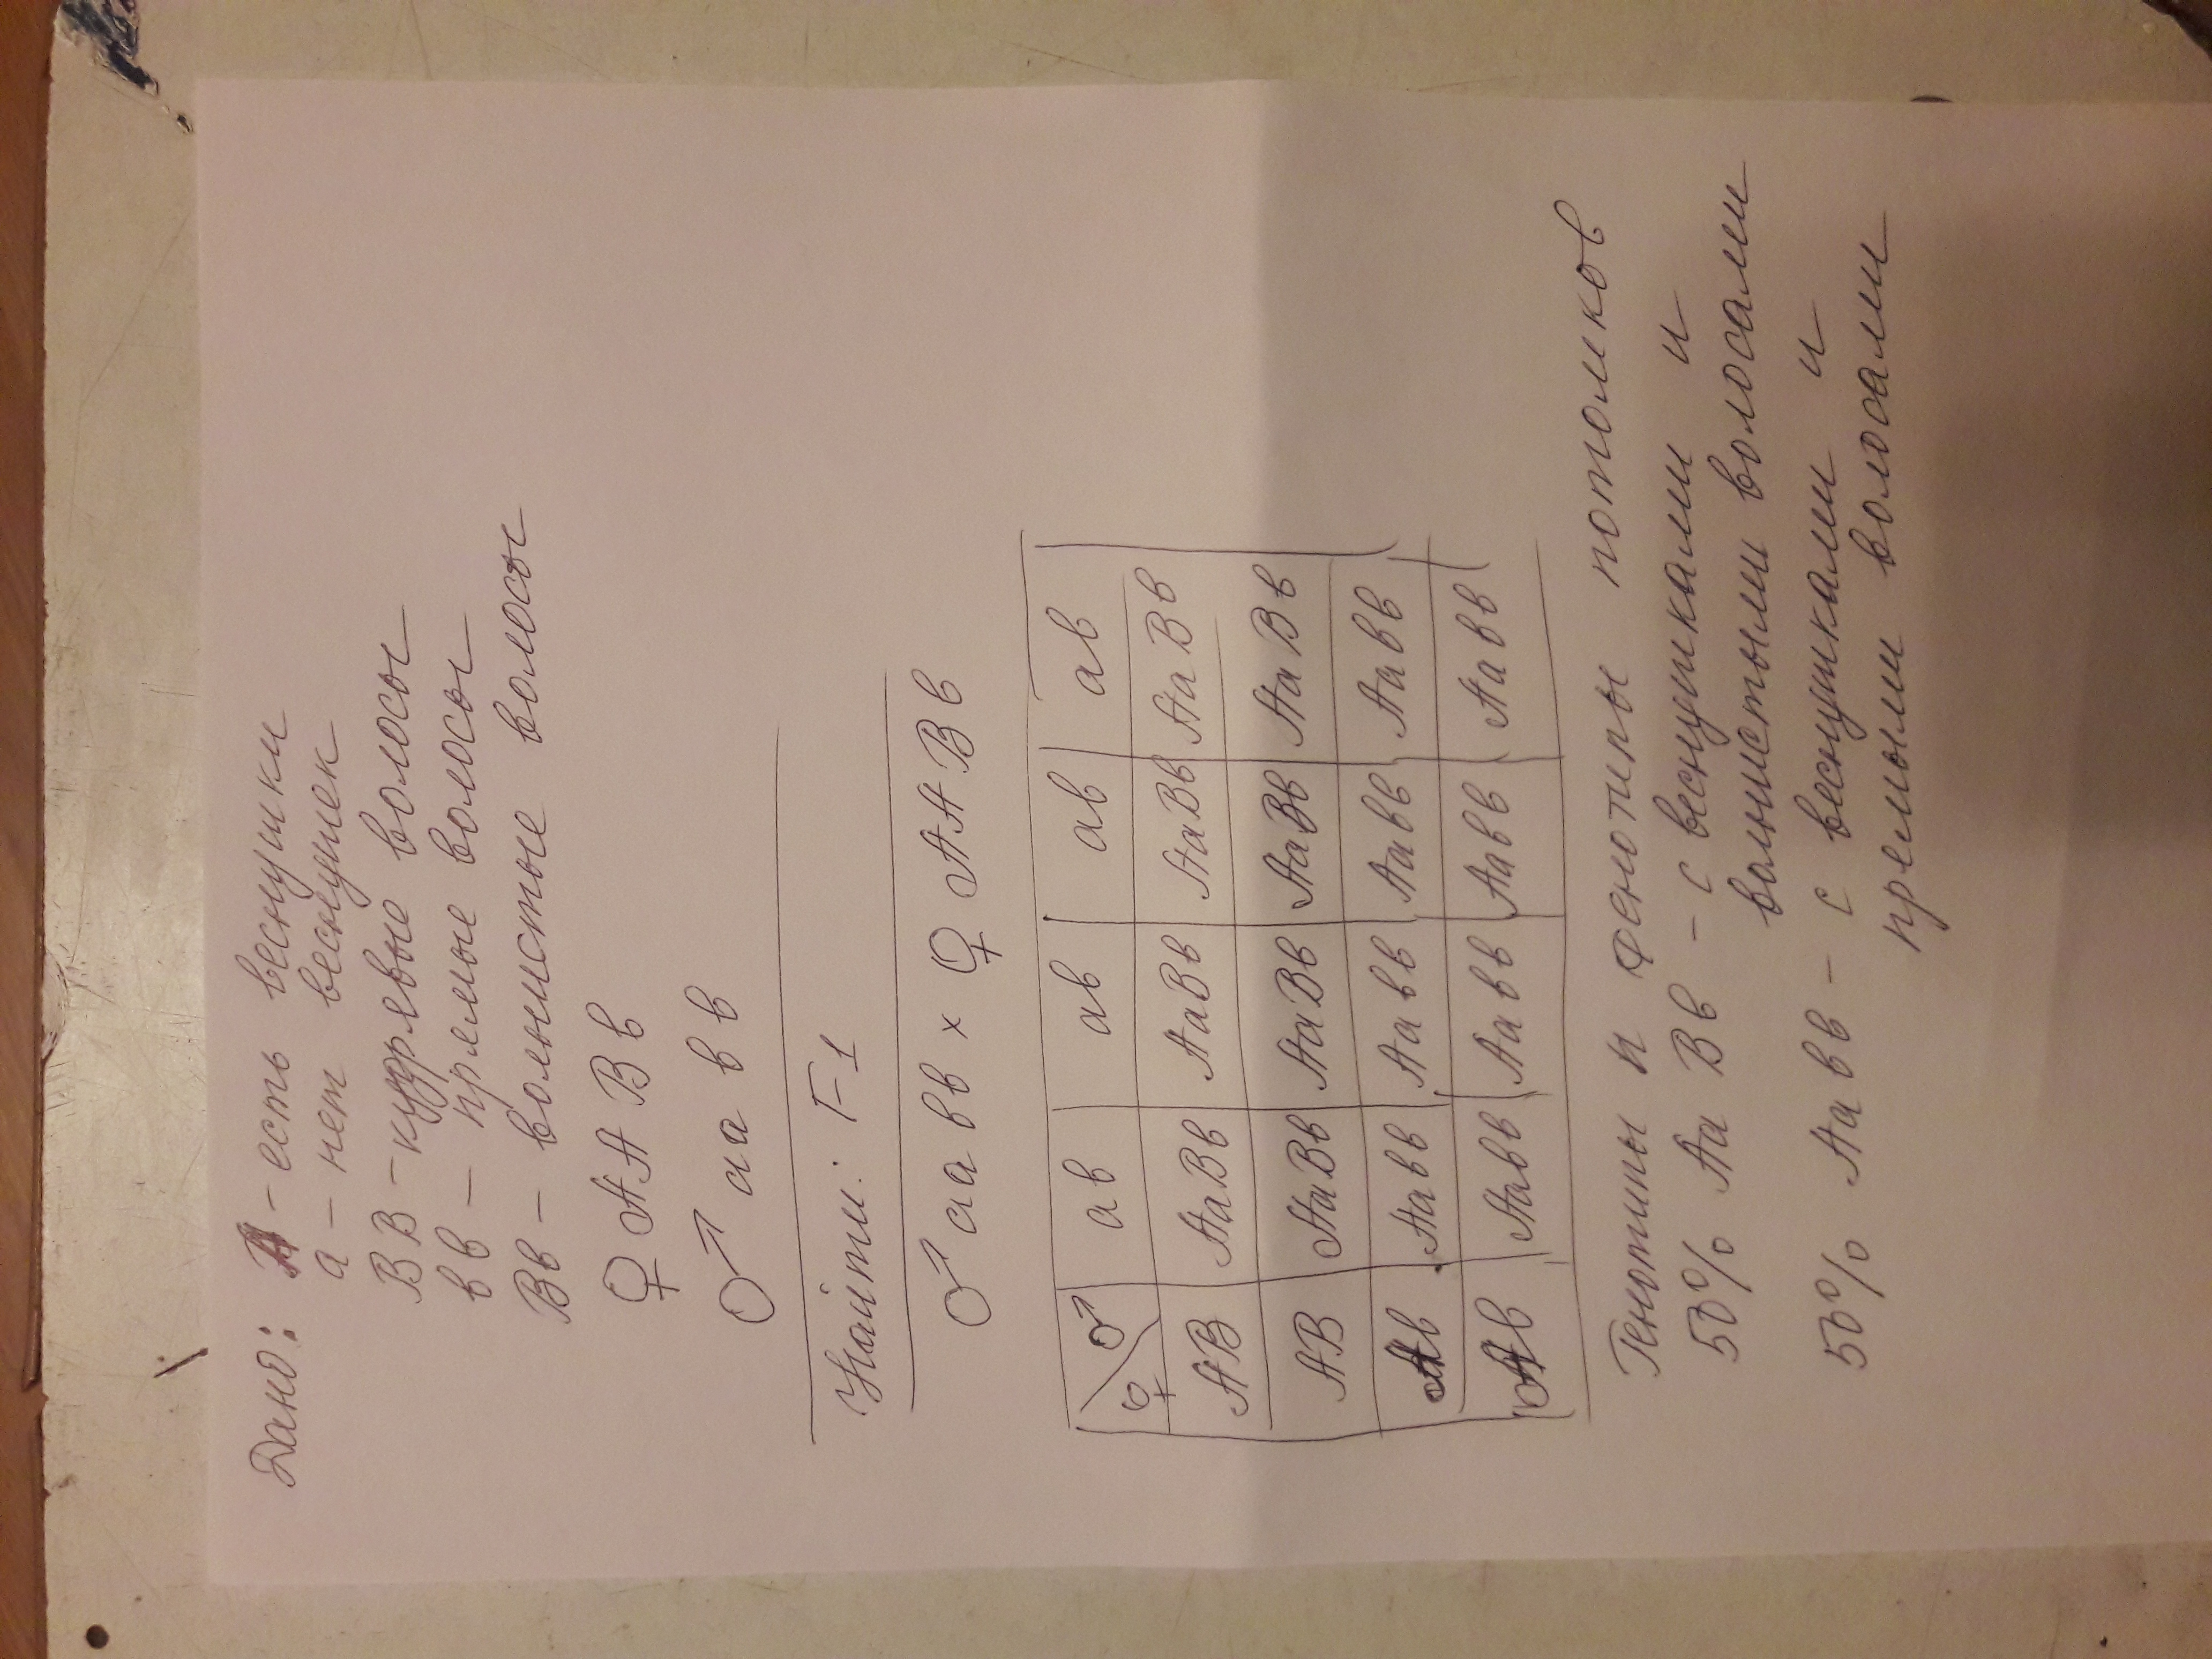 Дано: А - есть веснушки
а - нет веснушек
ВВ - кудрявые волосы
вв - прямые волосы
Вв - волнистые волосы
♀ АА Вв
♂ аа вв
Найти: F1
♂ аа вв × ♀ АА Вв
♀ ♂ ав ав ав ав
АВ АаВв АаВв АаВв АаВв
АВ АаВв АаВв АаВв АаВв
Ав Аавв Аавв Аавв Аавв
Ав Аавв Аавв Аавв Аавв
Генотипы и фенотипы потомков
50% Аа Вв - с веснушками и
волнистыми волосами
50% Аа вв - с веснушками и
прямыми волосами